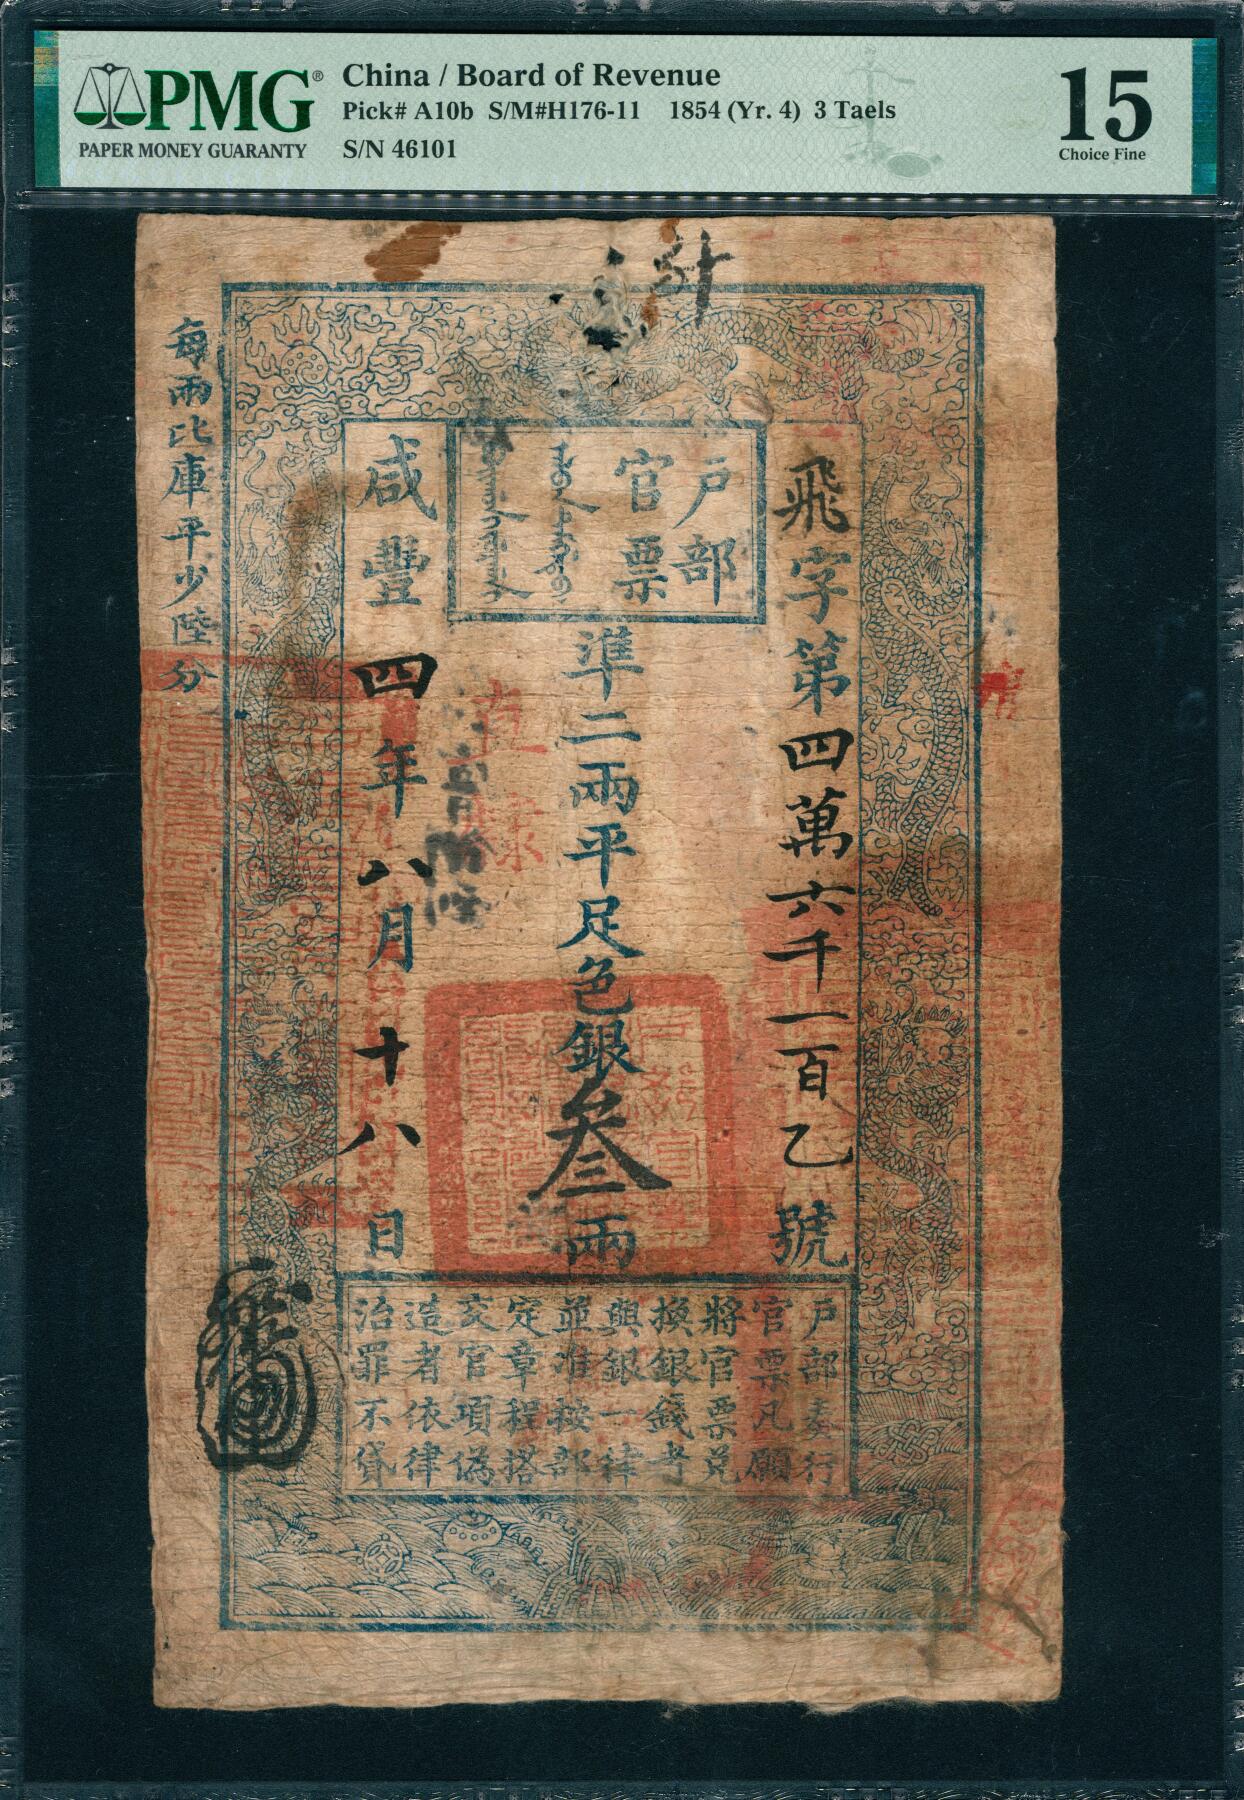 PMG®
PAPER MONEY GUARANTY
China / Board of Revenue
Pick# A10b S/M#H176-11 1854 (Yr. 4) 3 Taels
S/N 46101
15
Choice Fine
戶部
官票
飛字第四萬六千一百乙號
準二兩平足色銀叁兩
咸豐四年八月十八日
每兩比庫平少陸分
戶部奏行
官票凡願
將官票兌
換銀錢者
與銀一律
並准按部
定章程搭
交官項偽
造者依律
治罪不貸
直隸